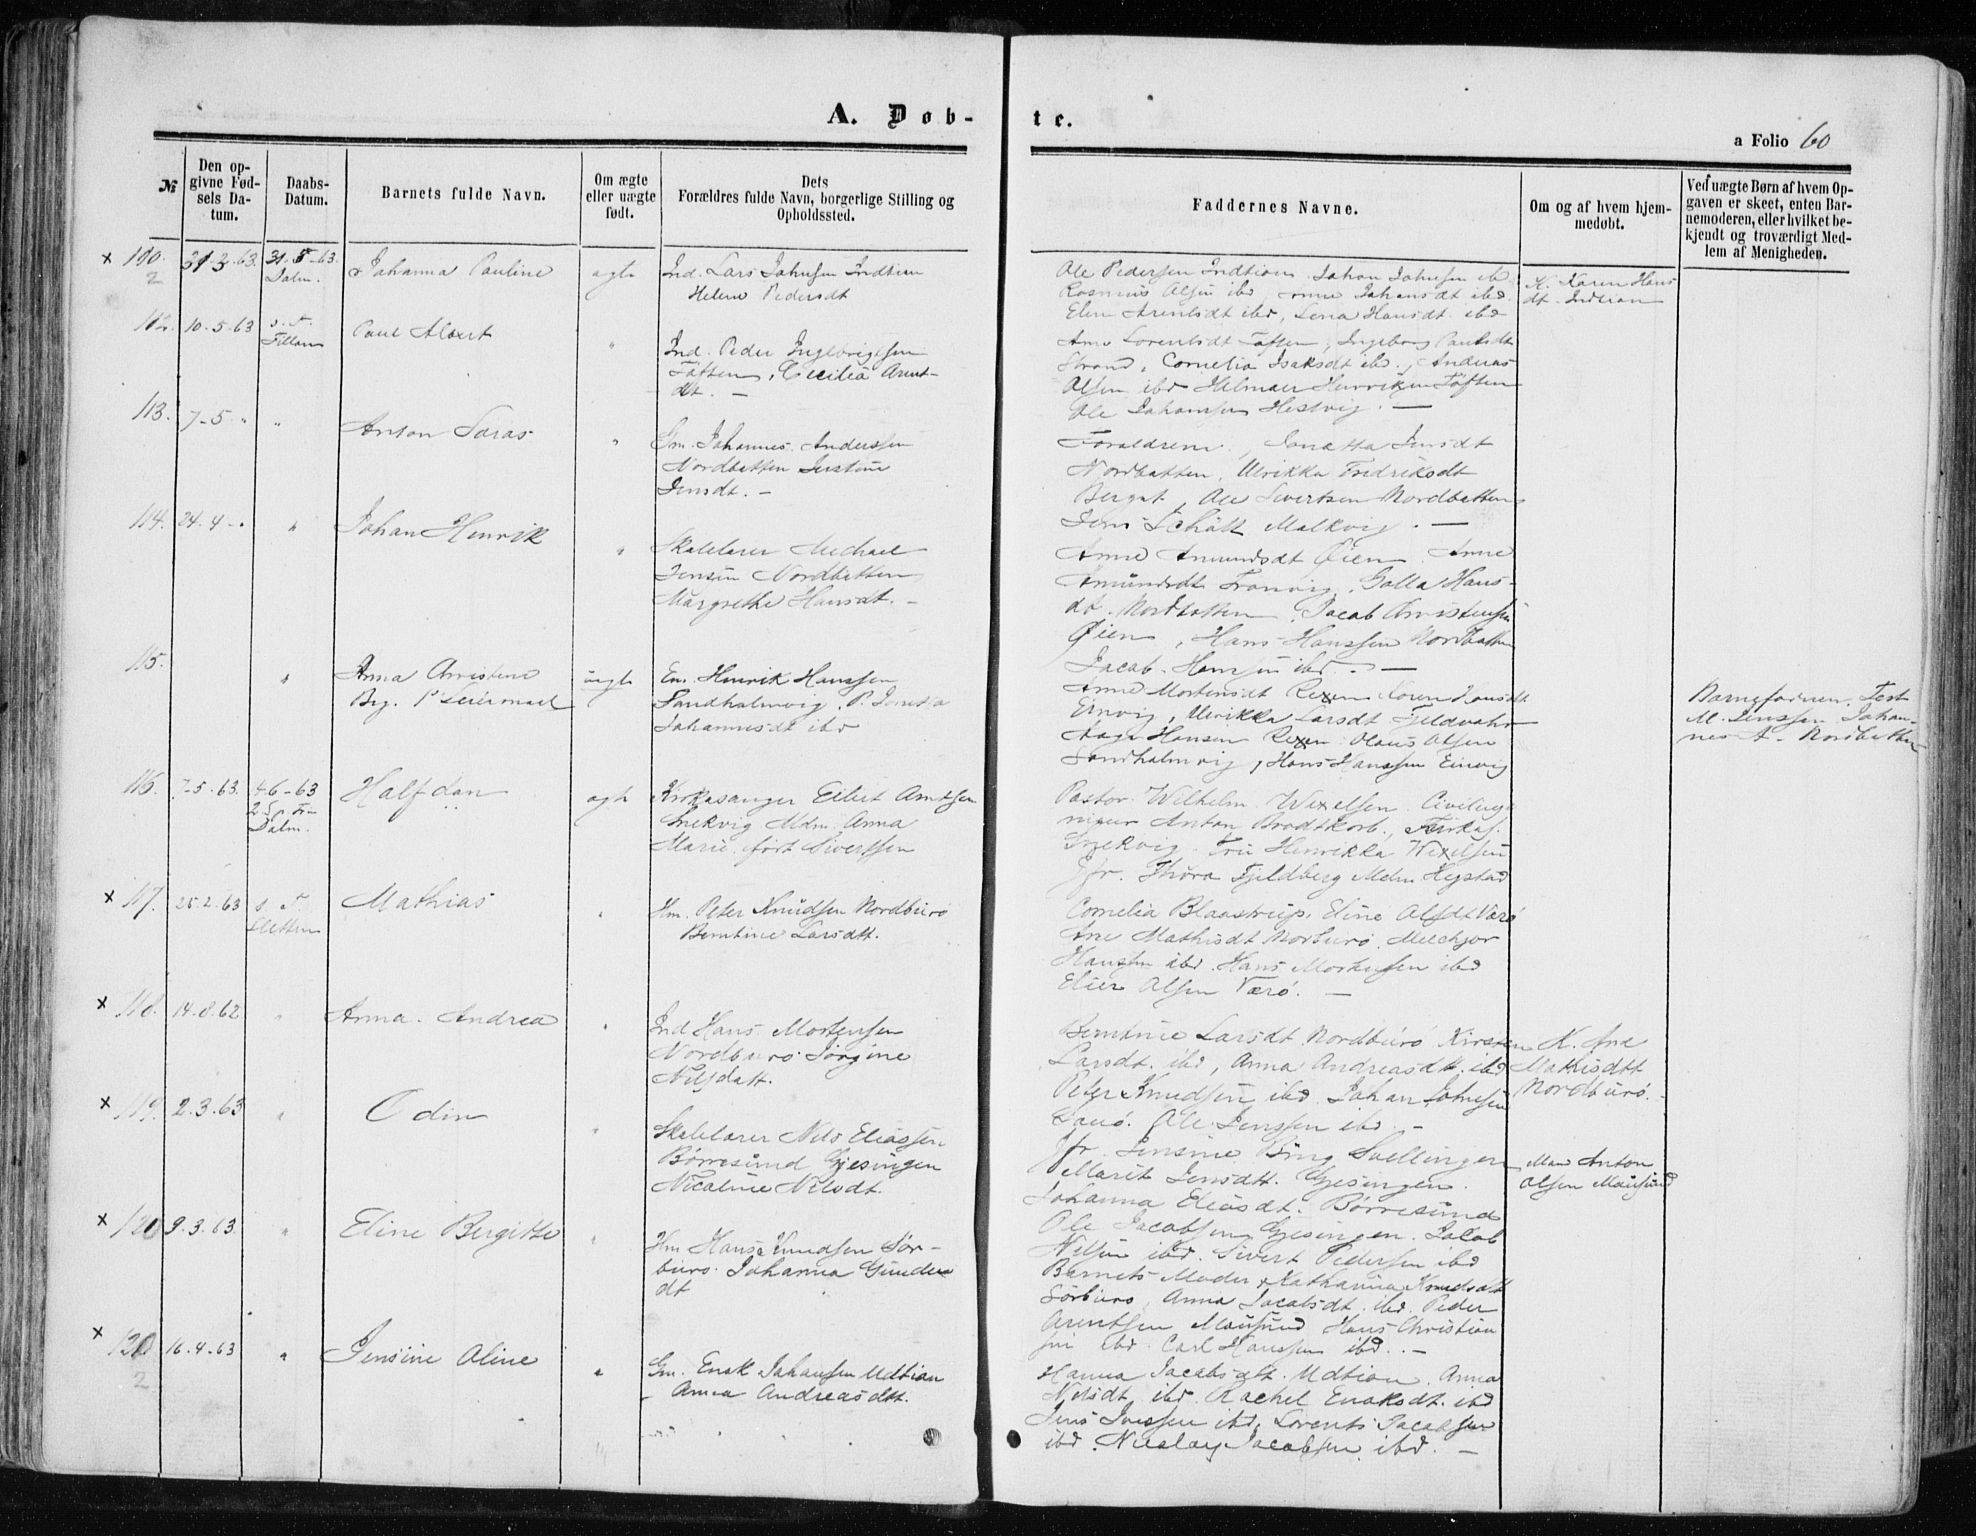 A. Døb-
te.
a Folio 60
№
Den op-
givne Fød-
sels Da-
tum.
Daabs-
Datum.
Barnets fulde Navn.
Om ægte
eller uægte
født.
Dets
Forældres fulde Navn, borgerlige Stilling og
Opholdssted.
Faddernes Navne.
Om og af hvem hjem-
medøbt.
Ved uægte Børn af hvem Op-
gaven er skeet, enten Bar-
nemoderen, eller hvilket be-
kjendt og troværdigt Med-
lem af Menigheden.
31-5-63
Dalm.
Johanna Pauline
ægte
Ind. Lars Johnsen Indtian
Helene Pedersdt
Ole Pedersen Indtian, Johan Johnsen ibd
Rasmus Olsen ibd, Anne Johansdt ibd
Elen Arentsdt ibd, Lena Hansdt ibd
K. Karen Hans
dt. Indtian
112. 10-5-63
s. D.
Fillan
Paul Albert
"
Ind. Peder Ingebrigtsen
Toften, Cecilia Arent-
dt. -
Ane Lorentsdt Toften, Ingeborg Paulsdt
Strand, Cornelia Isaksdt ibd, Andreas
Olsen ibd Hilmar Henriksen Toften
Ole Johansen Hestvig. -
113. 7-5 " "
Anton Saras
"
Gm. Johannes Anderssen
Nordbotten Justine
Jensdt. -
Forældrene, Jonetta Jensdt
Nordbotten, Ulrikka Fredriksdt
Berget, Ole Sivertsen Nordbotten
Jens Schött Malkvig. -
114. 24-4-" "
Johan Henrik
"
Skolelærer Michael
Jensen Nordbotten
Margrethe Hansdt. -
Anne Amundsdt Øien Anne
Amundsdt Tranvig, Golla Hans-
dt. Nordbotten, Jacob Christensen
Øien, Hans Hanssen Nordbotten
Jacob Hansen ibd. -
115. "
Anna Christine
Beg. s Leiermaal
uægte
Em. Henrik Hanssen
Sandholmvig, P. Jonetta
Johannesdt ibd
Anne Mortensdt Rexen Karen Hansdt
Einvig, Ulrikka Larsdt Fjeldvær
Aage Hansen Rexen Olaus Olsen
Sandholmvig, Hans Hanssen Einvig
Barnefaderen. Test
M. Jenssen Johan-
nes A. Nordbotten
116. 7-5-63.
4-6-63
Dalm.
Halfdan
ægte
Kirkesanger Eilert Arntsen
Snekvig Mdm. Anna
Marie født Siverssen
Pastor Wilhelm Wexelsen Civilinge
niøur Anton Brodtkorb, Kirkes.
Snekvig Fru Henrikka Wexelsen
Jfr. Thora Fjeldberg Mdm Hegstad
× 117. 25-2-63
s. D.
Sletten
Mathias
"
Hm. Peter Knudsen Nordburø
Berntine Larsdtt.
Cornelia Blaastrup, Eline Olsdt Værø
Ane Mathisdt Norburø, Melchjor
Hansen ibd. Hans Mortensen ibd
Elier Olsen Værø. -
× 118. 14-8-62 "
Anna Andrea
"
Ind Hans Mortensen
Nordburø Jørgine
Nilsdatt.
Berntine Larsdt Nordburø Kirsten
Larsdt. ibd, Anna Andreasdtt. ibd
Peter Knudsen ibd Johan Johnsen
Ole Jenssen ibd. -
K. Ane
Mathisdtt
Nordburø.
× 119. 2.3.63 "
Odin
"
Skolelærer Nils Eliassen
Børresund Gjesingen
Nicoline Nilsdt.
Jfr. Jensine Bing Svellingen
Marit Jensdtt. Gjesingen.
Johanna Eliasdt. Børresund
Ole Jacobsen Gjesingen. Jacob
Nilsen ibd. Sivert Pedersen ibd
Mand Anton
Olsen Mausund
× 120 9.3.63 "
Eline Bergitte
"
Hm Hans Knudsen Sør-
burø Johanna Gunders
dt
Barnets Moder Katharina Knudsdtt
Sørburø, Anna Jacobsdt. ibd. Peder
Arentsen Mausund Hans Christian
sen ibd. Carl Hanssen ibd. -
× 16.4.63 "
Jensine Oline
"
Gm. Enok Johansen Udtian
Anna Andreasdtt.
Hanna Jacobsdtt. Udtian. Anna
Nilsdt. ibd. Rachel Enoksdt. ibd
Jens Jenssen ibd, Lorents Jacobsen
ibd. Nicolay Jacobsen ibd. -